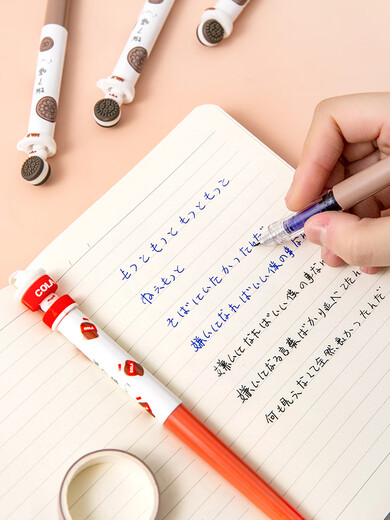 もっともっともっともっと
ねえもっと
そばにいたかっただけだ
嫌いになればいい僕の事な
嫌いになればいい僕の事な
嫌いになる言葉ばかり並べてたん
何も見えなくて全然、悪かったんだ
COLA